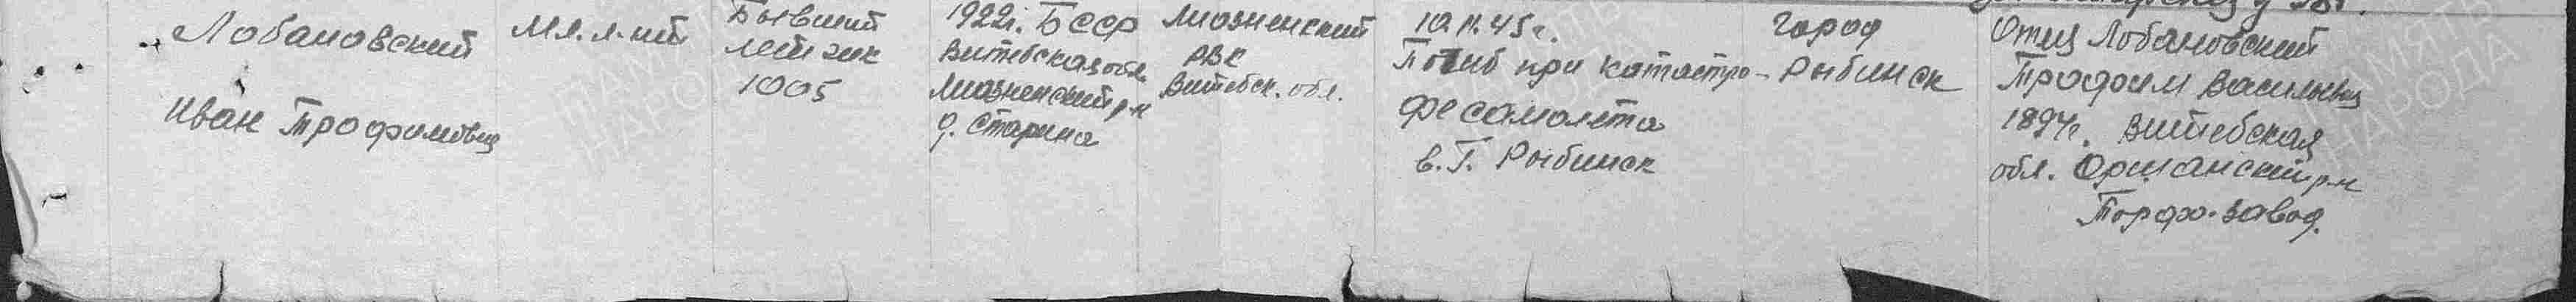 Лобановский
Иван Трофимович
Мл. л-нт
Бывший
летчик
1005
1922г. БССР
Витебская обл.
Лиозненский р-н
д. Старина
Лиозненский
РВК
Витебск. обл.
10.11.45г.
Погиб при катастро-
фе самолета
в. Г. Рыбинск
город
Рыбинск
Отец Лобановский
Трофим Васильевич
1894г. Витебская
обл. Оршанский р-н
Торф. завод.